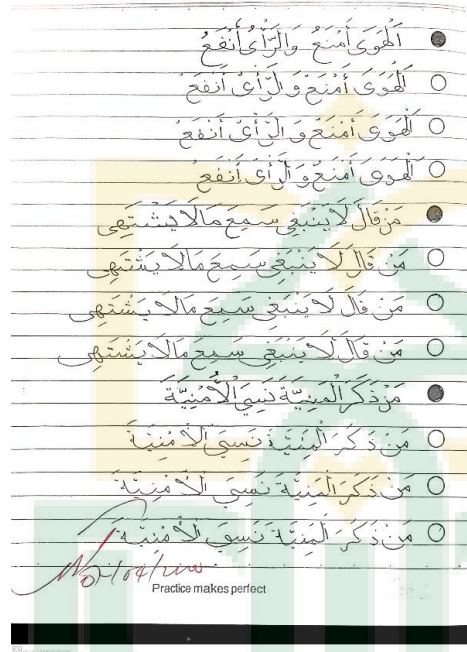 اَلْهَوَى أَمْنَعُ وَالرَّأْيُ أَنْفَعُ
اَلْهَوَى أَمْنَعُ وَالرَّأْيُ أَنْفَعُ
اَلْهَوَى أَمْنَعُ وَالرَّأْيُ أَنْفَعُ
اَلْهَوَى أَمْنَعُ وَالرَّأْيُ أَنْفَعُ
مَنْ قَالَ لَا يَنْبَغِي سَمِعَ مَالَا يَشْتَهِى
مَنْ قَالَ لَا يَنْبَغِي سَمِعَ مَالَا يَشْتَهِى
مَنْ قَالَ لَا يَنْبَغِي سَمِعَ مَالَا يَشْتَهِى
مَنْ قَالَ لَا يَنْبَغِي سَمِعَ مَالَا يَشْتَهِى
مَنْ ذَكَرَ الْمَنِيَّةَ نَسِيَ الْأُمْنِيَّةَ
مَنْ ذَكَرَ الْمَنِيَّةَ نَسِيَ الْأُمْنِيَّةَ
مَنْ ذَكَرَ الْمَنِيَّةَ نَسِيَ الْأُمْنِيَّةَ
مَنْ ذَكَرَ الْمَنِيَّةَ نَسِيَ الْأُمْنِيَّةَ
Practice makes perfect